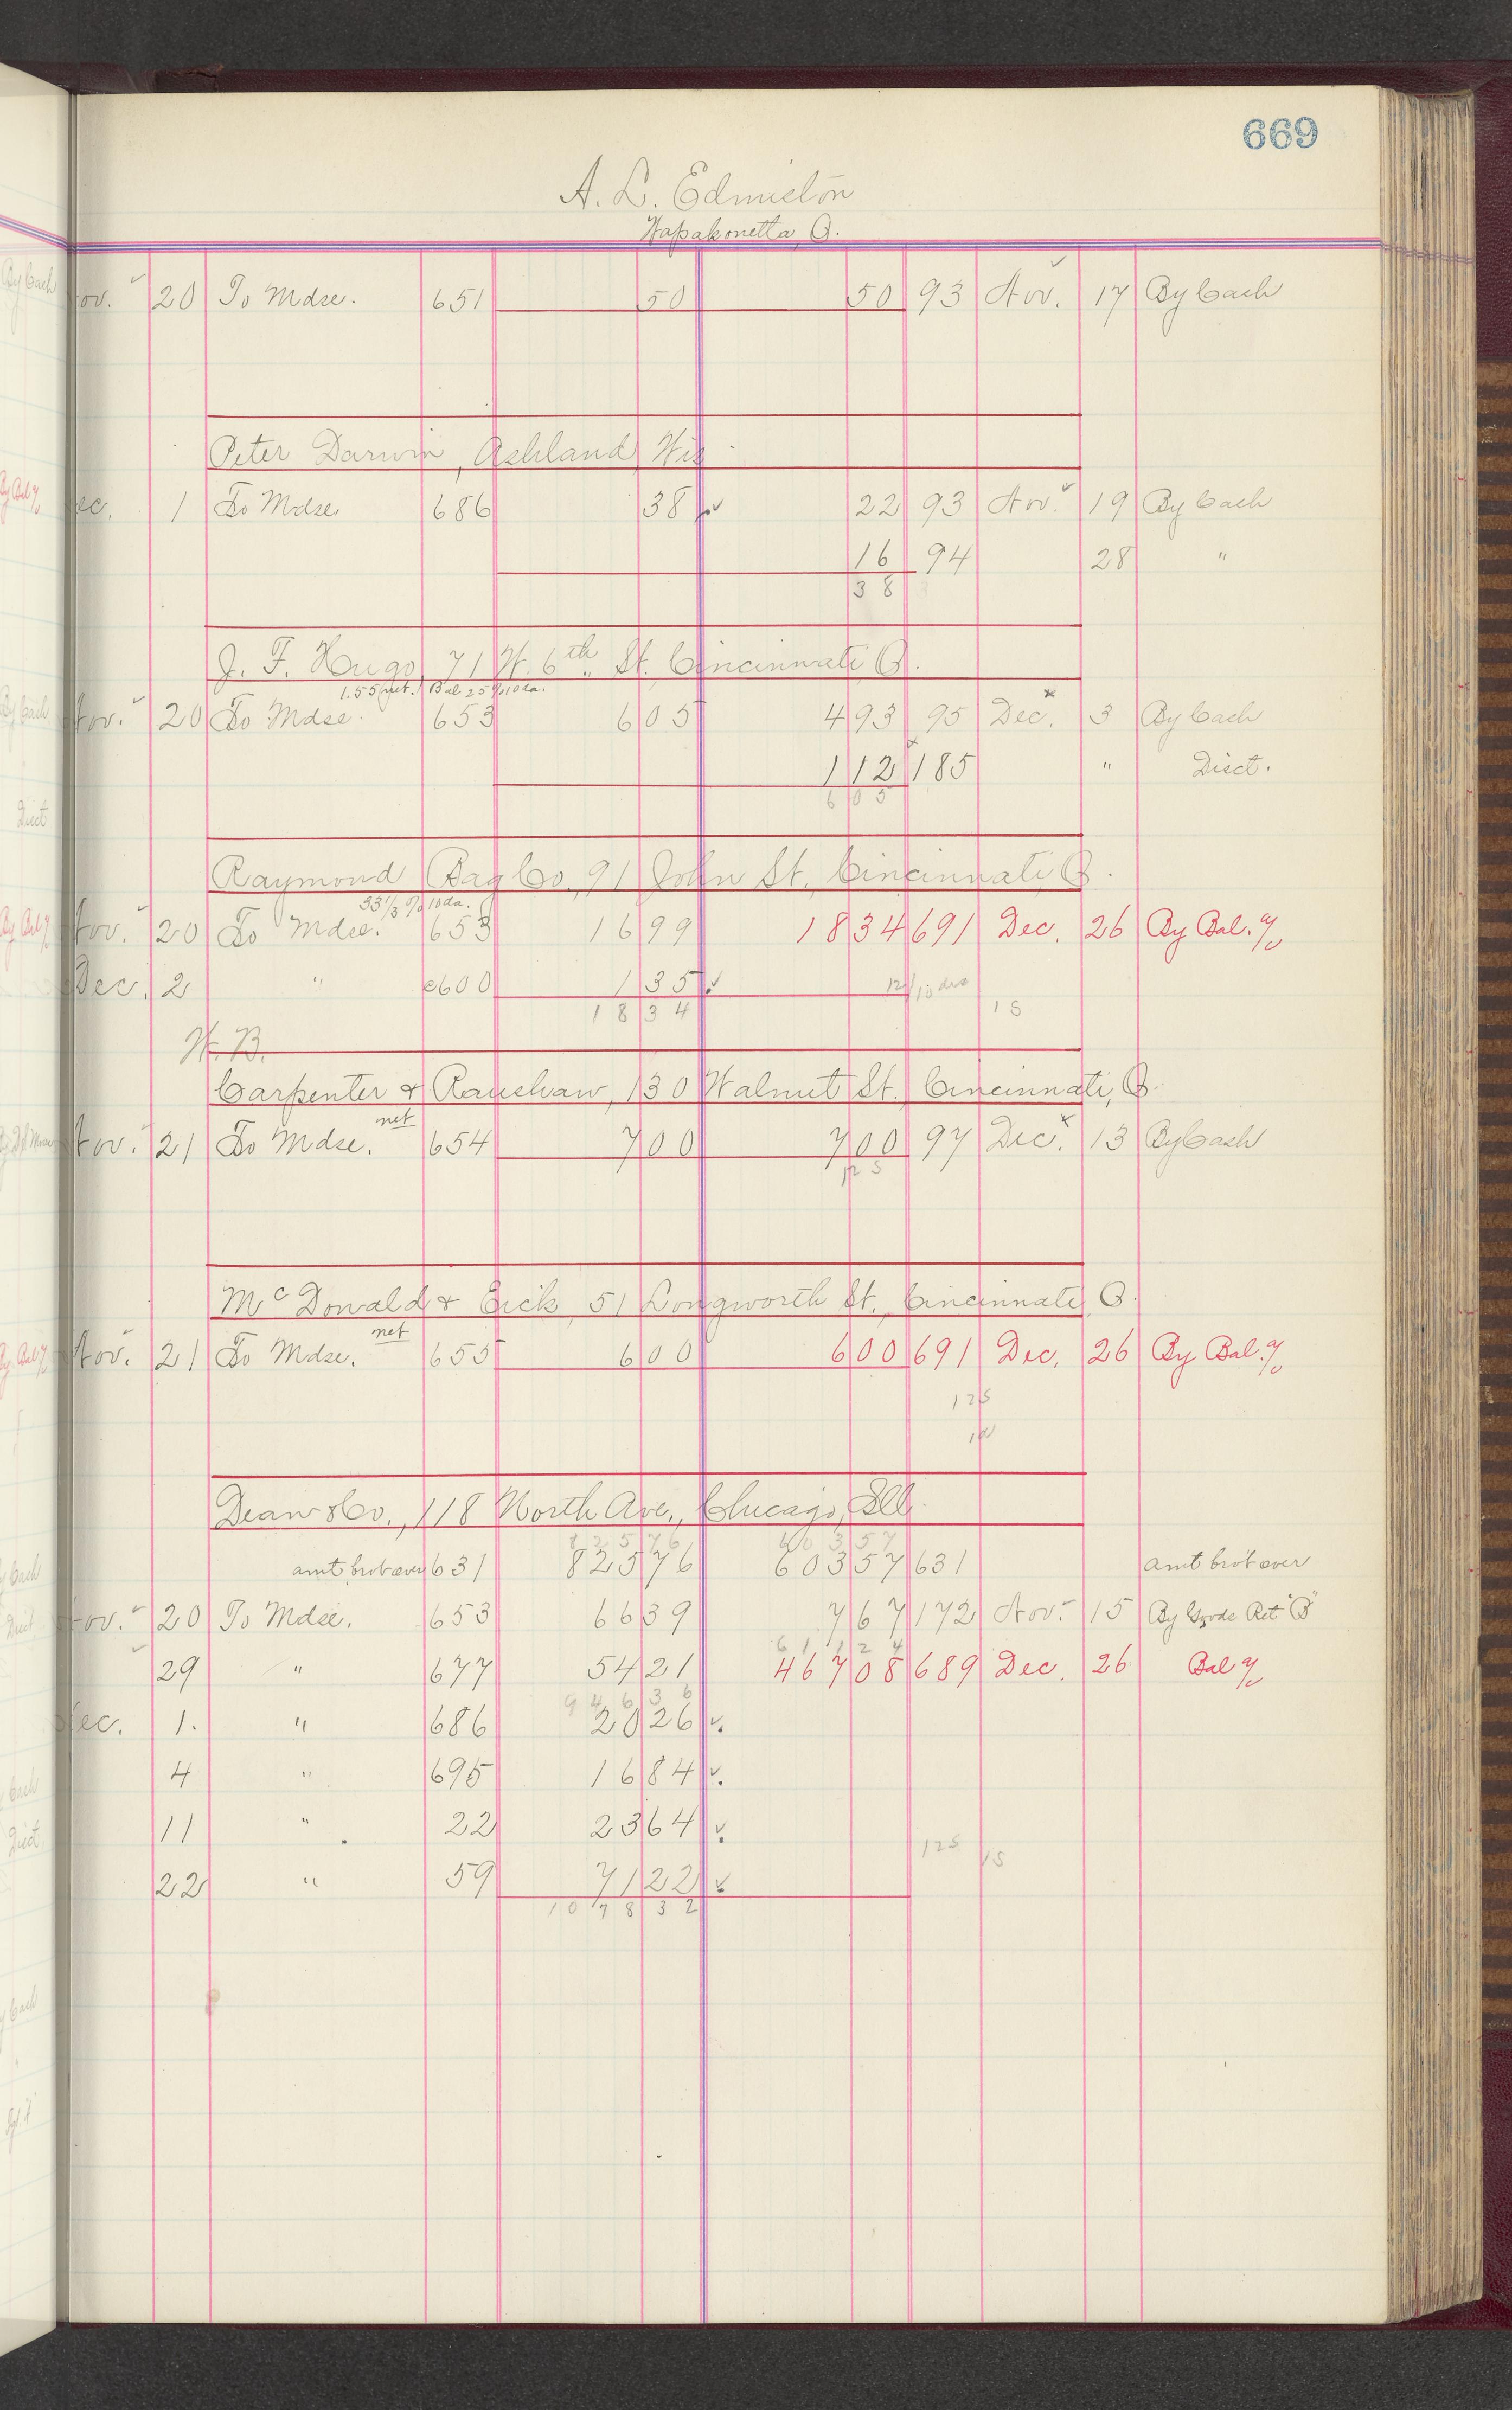 669
A. L. Edmiston
Wapakonetta, O.
ov. 20 To Mdse. 651 50 50 93 Nov. 17 By Cash
Peter Darwin, Ashland, Wis
ec. 1 To Mdse 686 38 22 93 Nov. 19 By Cash
16 94 28 "
38
J. F. Hugo, 71 W. 6th St. Cincinnati, O.
1.55 net. Bal 25% 10 da.
Nov. 20 To Mdse. 653 605 493 95 Dec. 3 By Cash
112 185 " Disct.
605
Raymond Bag Co., 91 John St., Cincinnati, O.
33 1/3 % 10 da.
Nov. 20 To Mdse. 653 1699 1834 691 Dec. 26 By Bal. a/c
Dec. 2 " e600 135
1834 15
W. B.
Carpenter & Raushaw, 130 Walnut St. Cincinnati, O.
net
Nov. 21 To Mdse. 654 700 700 97 Dec. 13 By Cash
12 5
McDonald & Eick, 51 Longworth St., Cincinnati, O.
net
Nov. 21 To Mdse. 655 600 600 691 Dec. 26 By Bal. a/c
125
Dean & Co., 118 North Ave., Chicago, Ill.
82576 60357
amt brot over 631 82576 60357 631 amt brot over
Nov. 20 To Mdse. 653 6639 767 172 Nov. 15 By Goods Ret "B"
61124
29 " 677 5421 46708 689 Dec. 26 Bal a/c
94636
Dec. 1. " 686 2026
4 " 695 1684
11 " 22 2364
125 15
22 " 59 7122
107832